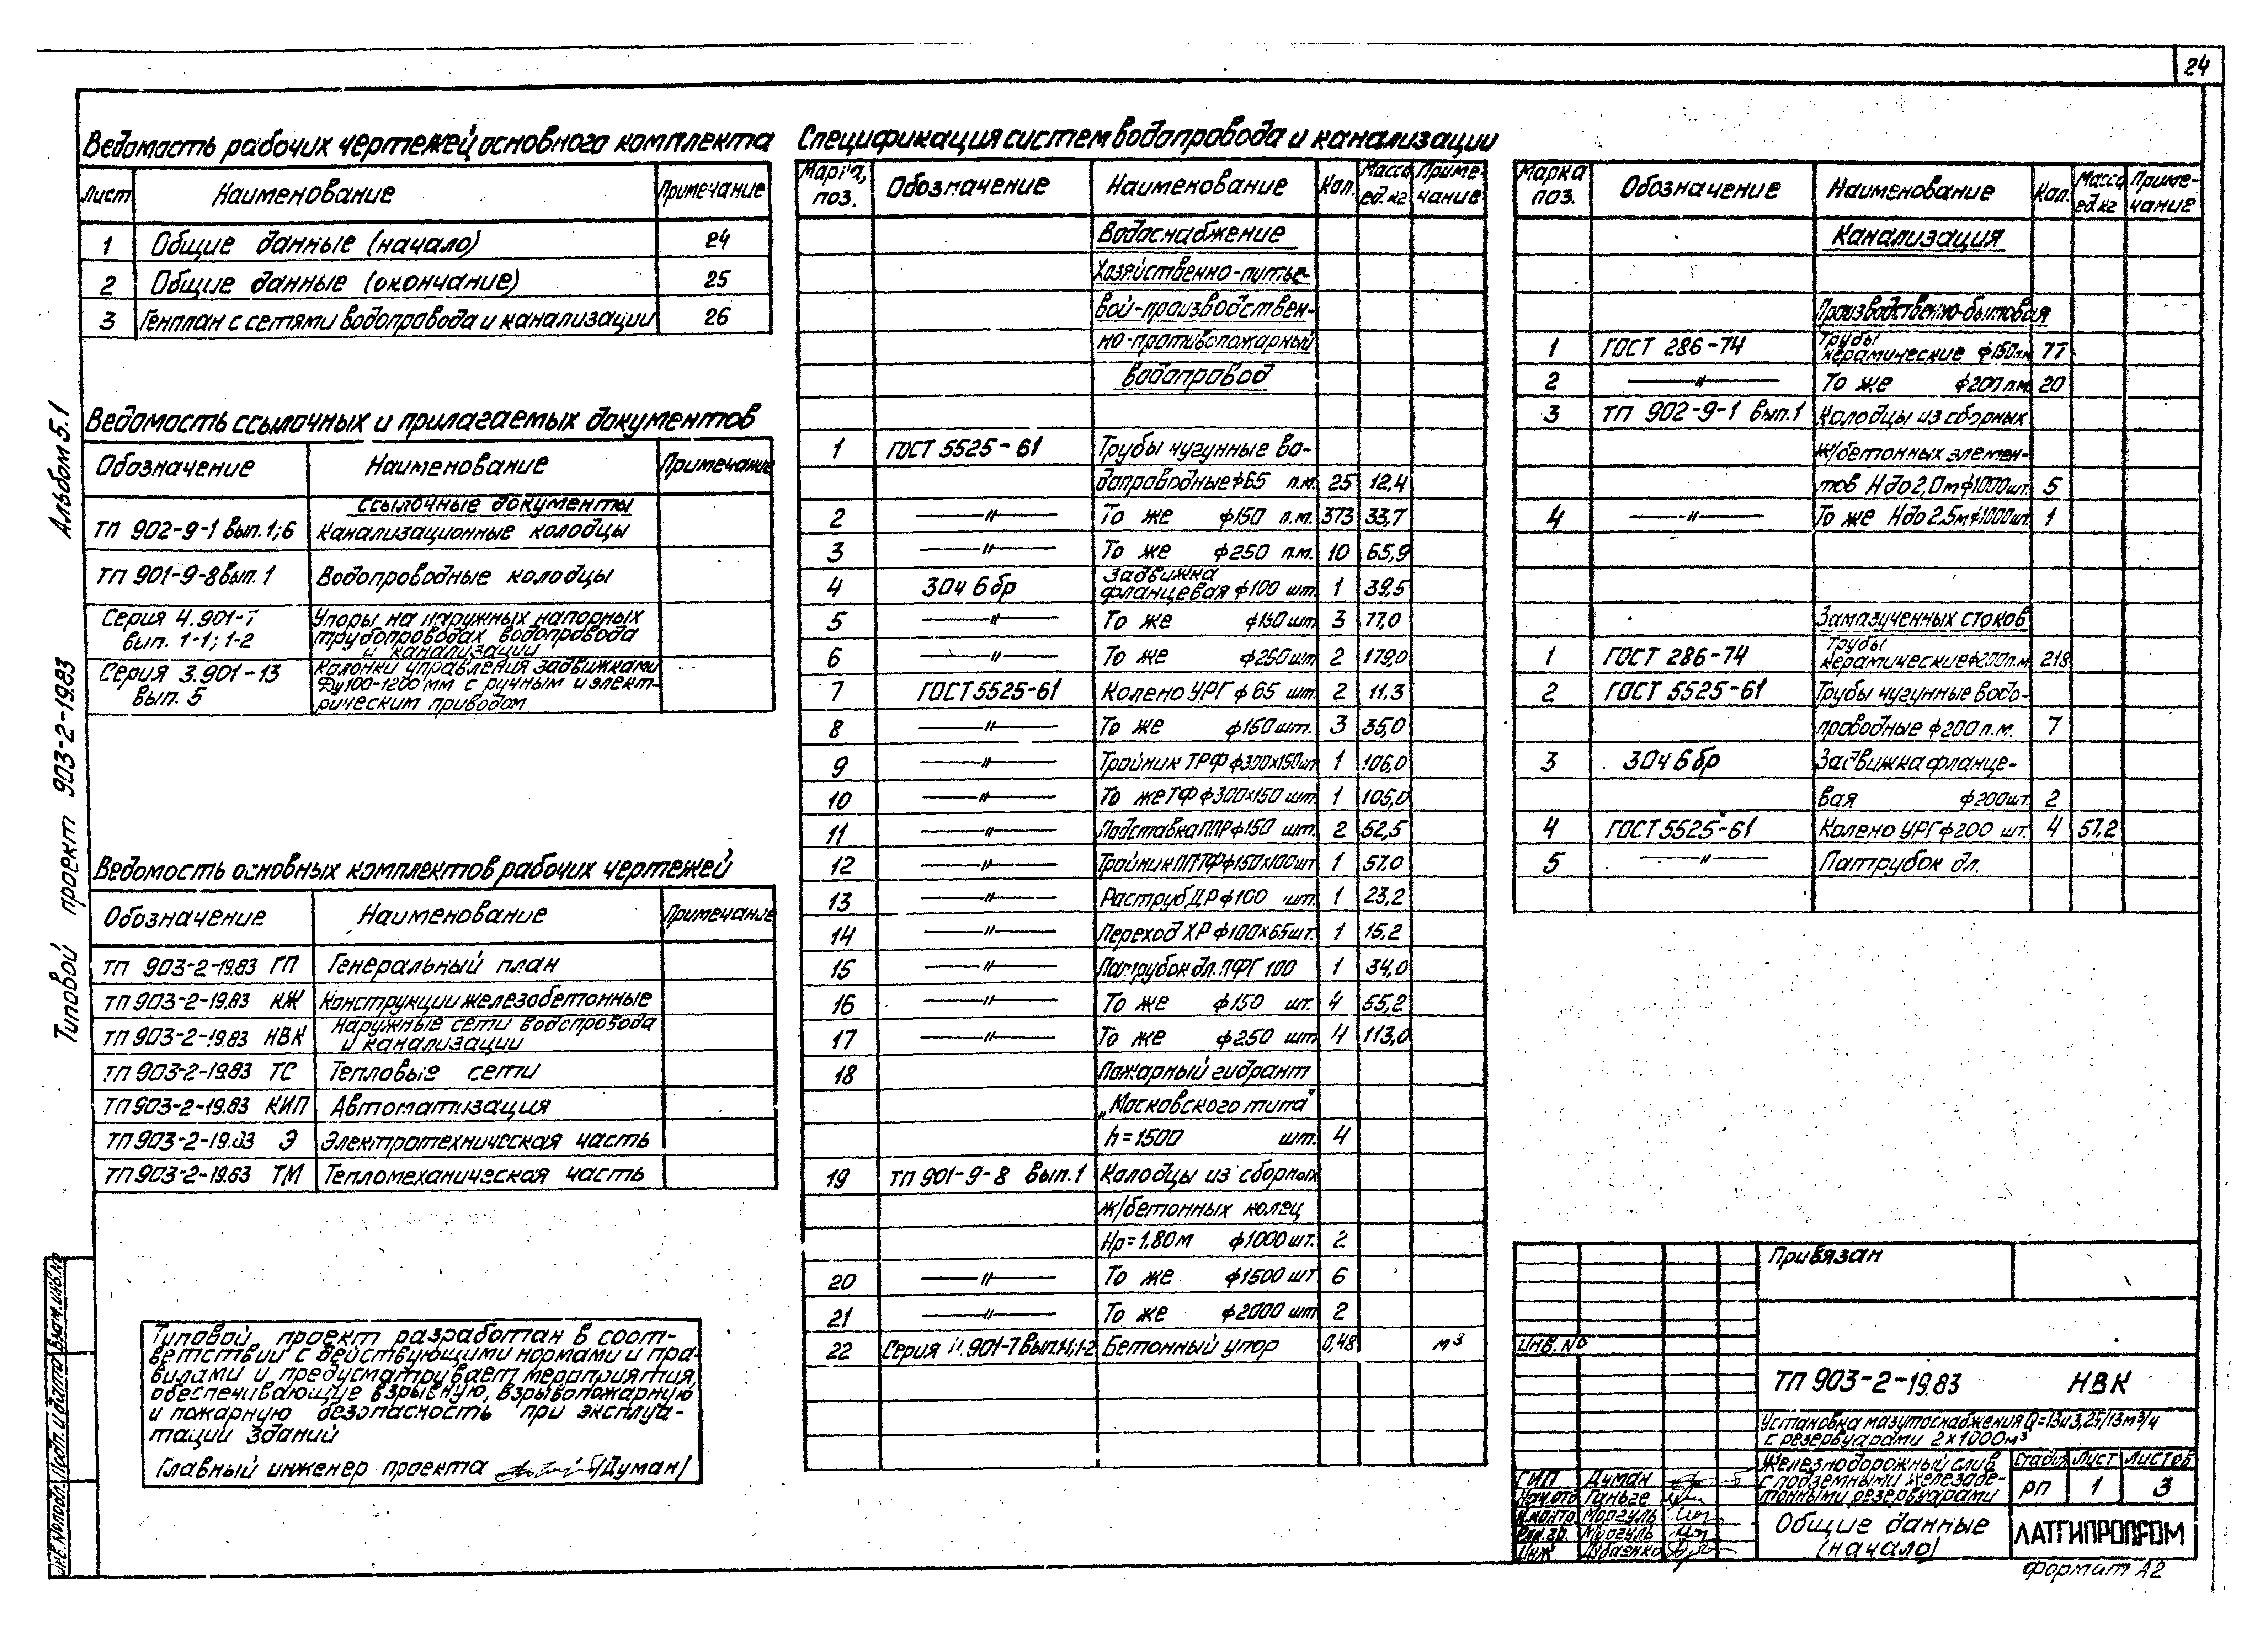 24
Альбом 5.1
Типовой проект 903-2-19.83
Ведомость рабочих чертежей основного комплекта
Лист Наименование Примечание
1 Общие данные (начало) 24
2 Общие данные (окончание) 25
3 Генплан с сетями водопровода и канализации 26
Ведомость ссылочных и прилагаемых документов
Обозначение Наименование Примечание
Ссылочные документы
ТП 902-9-1 вып. 1;6 Канализационные колодцы
ТП 901-9-8 вып. 1 Водопроводные колодцы
Серия 4.901-7 Упоры на наружных напорных
вып. 1-1; 1-2 трубопроводах водопровода
и канализации
Серия 3.901-13 Колонки управления задвижками
вып. 5 Ду100-1200мм с ручным и элект-
рическим приводом
Ведомость основных комплектов рабочих чертежей
Обозначение Наименование Примечание
ТП 903-2-19.83 ГП Генеральный план
ТП 903-2-19.83 КЖ Конструкции железобетонные
ТП 903-2-19.83 НВК Наружные сети водопровода
и канализации
ТП 903-2-19.83 ТС Тепловые сети
ТП 903-2-19.83 КИП Автоматизация
ТП 903-2-19.83 Э Электротехническая часть
ТП 903-2-19.83 ТМ Тепломеханическая часть
Типовой проект разработан в соот-
ветствии с действующими нормами и пра-
вилами и предусматривает мероприятия,
обеспечивающие взрывную, взрывопожарную
и пожарную безопасность при эксплуа-
тации зданий
Главный инженер проекта /Думан/
Спецификация систем водопровода и канализации
Марка, поз. Обозначение Наименование Кол. Масса ед. кг Приме-чание
Водоснабжение
Хозяйственно-питье-
вой-производствен-
но-противопожарный
водопровод
1 ГОСТ 5525-61 Трубы чугунные во-
допроводные ф65 п.м. 25 12,4
2 —〃— То же ф150 п.м. 373 33,7
3 —〃— То же ф250 п.м. 10 65,9
4 30ч 6бр Задвижка
фланцевая ф100 шт. 1 39,5
5 —〃— То же ф150 шт 3 77,0
6 —〃— То же ф250 шт 2 179,0
7 ГОСТ 5525-61 Колено УРГ ф 65 шт. 2 11.3
8 —〃— То же ф150 шт. 3 35,0
9 —〃— Тройник ТРФ ф300х150 шт 1 106,0
10 —〃— То же ТФ ф300х150 шт. 1 105,0
11 —〃— Подставка ППР ф150 шт. 2 52,5
12 —〃— Тройник ППТФ ф150х100 шт 1 57.0
13 —〃— Раструб ДР ф100 шт. 1 23,2
14 —〃— Переход ХР ф100х65 шт. 1 15,2
15 —〃— Патрубок дл. ПФГ 100 1 34,0
16 —〃— То же ф150 шт. 4 55,2
17 —〃— То же ф250 шт 4 113,0
18 Пожарный гидрант
„Московского типа"
h=1500 шт. 4
19 ТП 901-9-8 вып.1 Колодцы из сборных
ж/бетонных колец
Нр=1.80м ф1000 шт. 2
20 —〃— То же ф1500 шт 6
21 —〃— То же ф2000 шт 2
22 Серия 4.901-7 вып.1-1;1-2 Бетонный упор 0,48 м³
Марка поз. Обозначение Наименование Кол. Масса ед. кг Приме-чание
Канализация
Производственно-бытовая
1 ГОСТ 286-74 Трубы
керамические ф150 п.м 77
2 —〃— То же ф200 п.м. 20
3 ТП 902-9-1 вып.1 Колодцы из сборных
ж/бетонных элемен-
тов Н до 2,0м ф1000 шт. 5
4 —〃— То же Н до 2.5м ф1000 шт. 1
Замазученных стоков
1 ГОСТ 286-74 Трубы
керамические ф200 п.м. 218
2 ГОСТ 5525-61 Трубы чугунные водо-
проводные ф200 п.м. 7
3 30ч 6бр Задвижка фланце-
вая ф200 шт. 2
4 ГОСТ 5525-61 Колено УРГ ф200 шт. 4 57.2
5 —〃— Патрубок дл.
Привязан
Инв. №
ТП 903-2-19.83 НВК
Установка мазутоснабжения Q=13и3,25/13м³/ч
с резервуарами 2х1000м³
Железнодорожный слив
с подземными железобе-
тонными резервуарами
Стадия Лист Листов
РП 1 3
ГИП Думан
Нач.отд Ганьге
Н.контр Моргуль
Рук.гр. Моргуль
Инж
Общие данные
(начало)
ЛАТГИПРОПРОМ
Формат А2
Инв.№подл. Подп. и дата Взам.инв.№